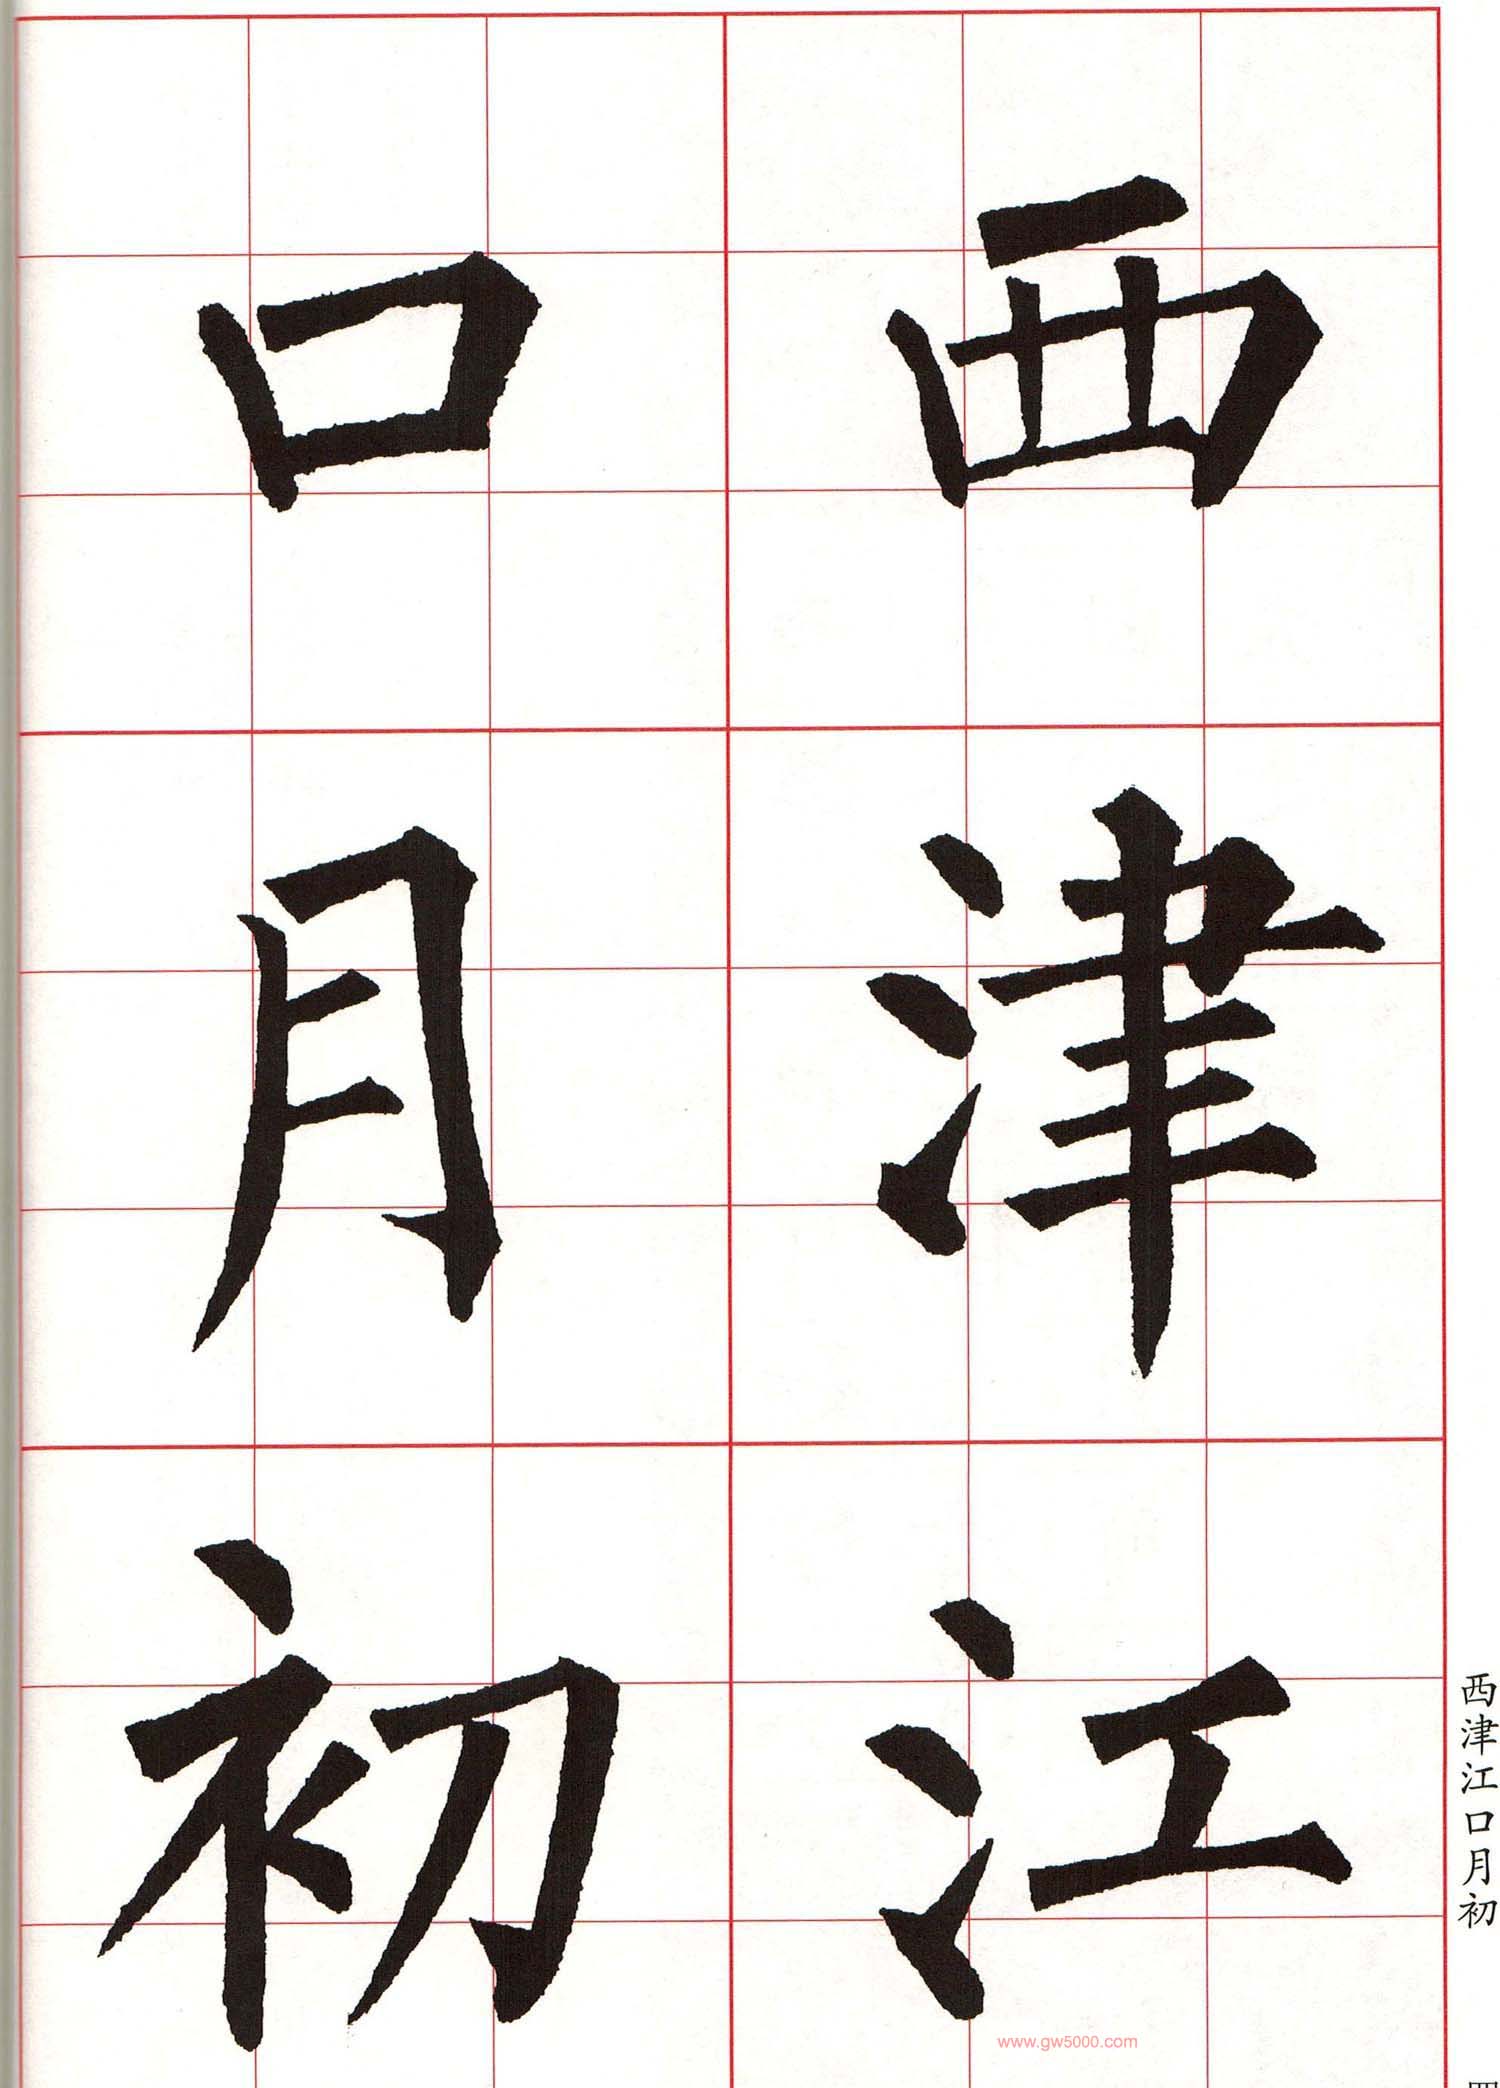 西津江
口月初
西津江口月初
www.gw5000.com